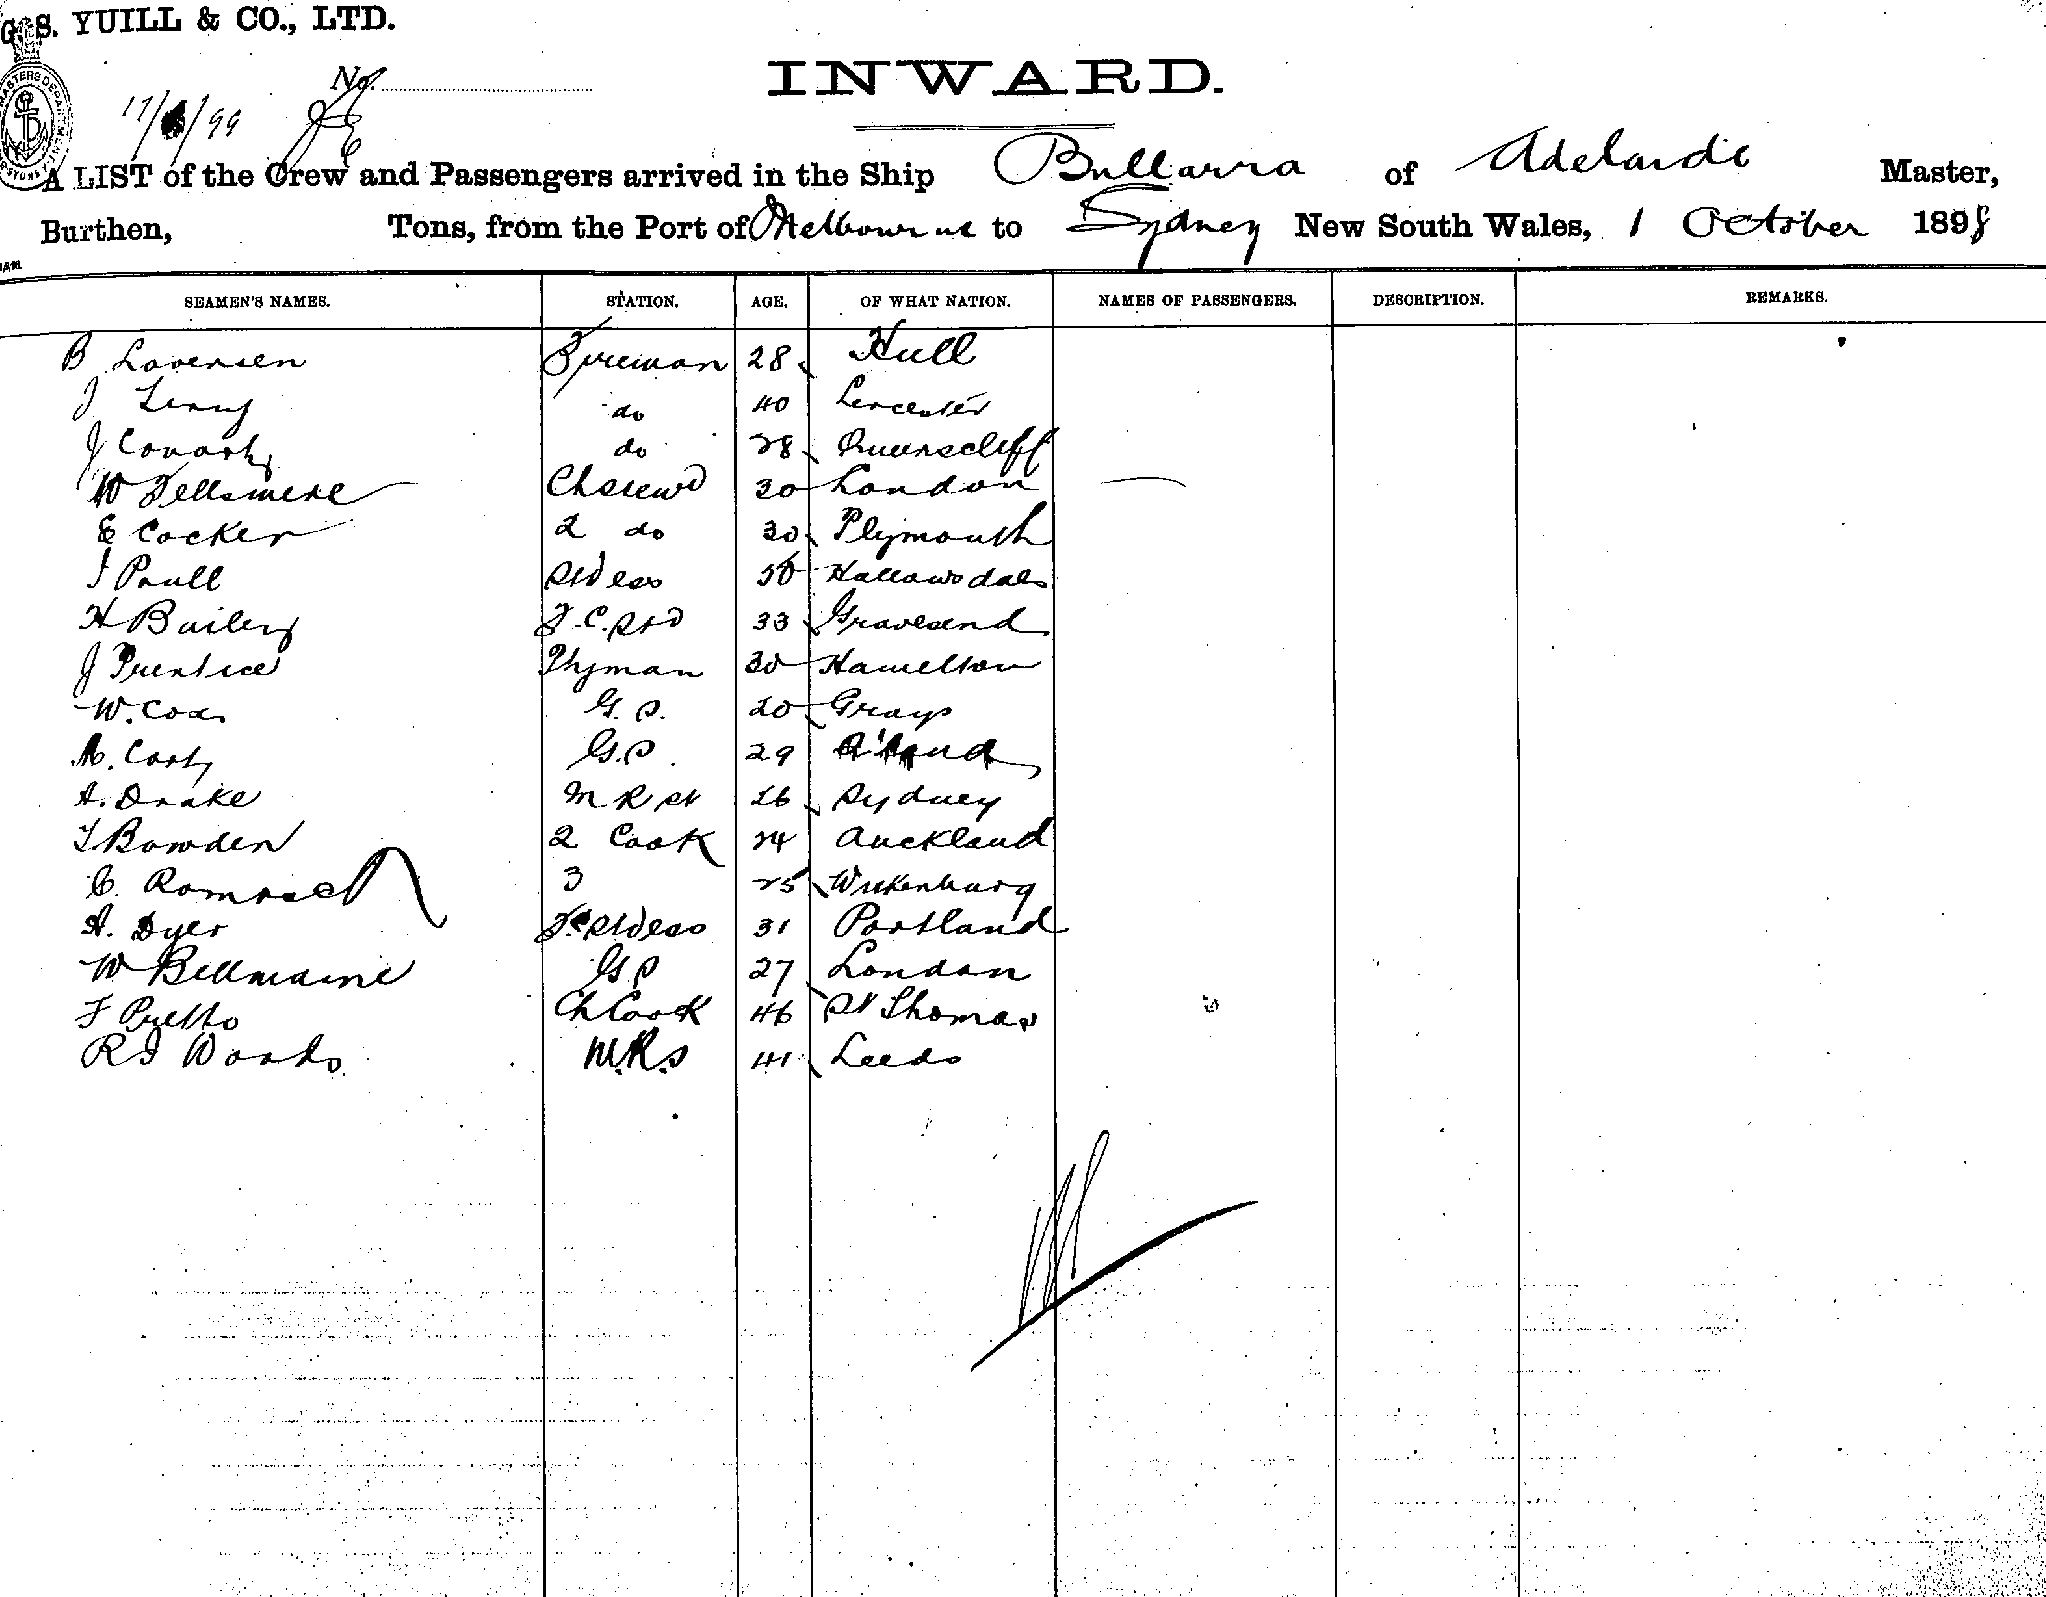 G. S. YUILL & CO., LTD.
No.
INWARD.
A LIST of the Crew and Passengers arrived in the Ship Bullarra of Adelaide Master,
Burthen, Tons, from the Port of Melbourne to Sydney New South Wales, 1 October 1898
SEAMEN'S NAMES. STATION. AGE. OF WHAT NATION. NAMES OF PASSENGERS. DESCRIPTION. REMARKS.
B Lavensen Fireman 28 Hull
J do 40 Leicester
J do 28 Queenscliff
W Fellsmere 30 London
E Cocker 2 do 30 Plymouth
J Paull Stdess
H Bailey F.C. Std 33 Gravesend
J Prentice 30 Hamelton
W. Cox G.S. 20 Grays
M. Carty G.S. 29
A. Drake M R St 26 Sydney
T Bowden 2 Cook 24 Auckland
C. 3 25
A. Dyer Stdess 31 Portland
W Bellmaine G S 27 London
F Pretto Ch Cook 46 St Thomas
R J M.R.S 41 Leeds